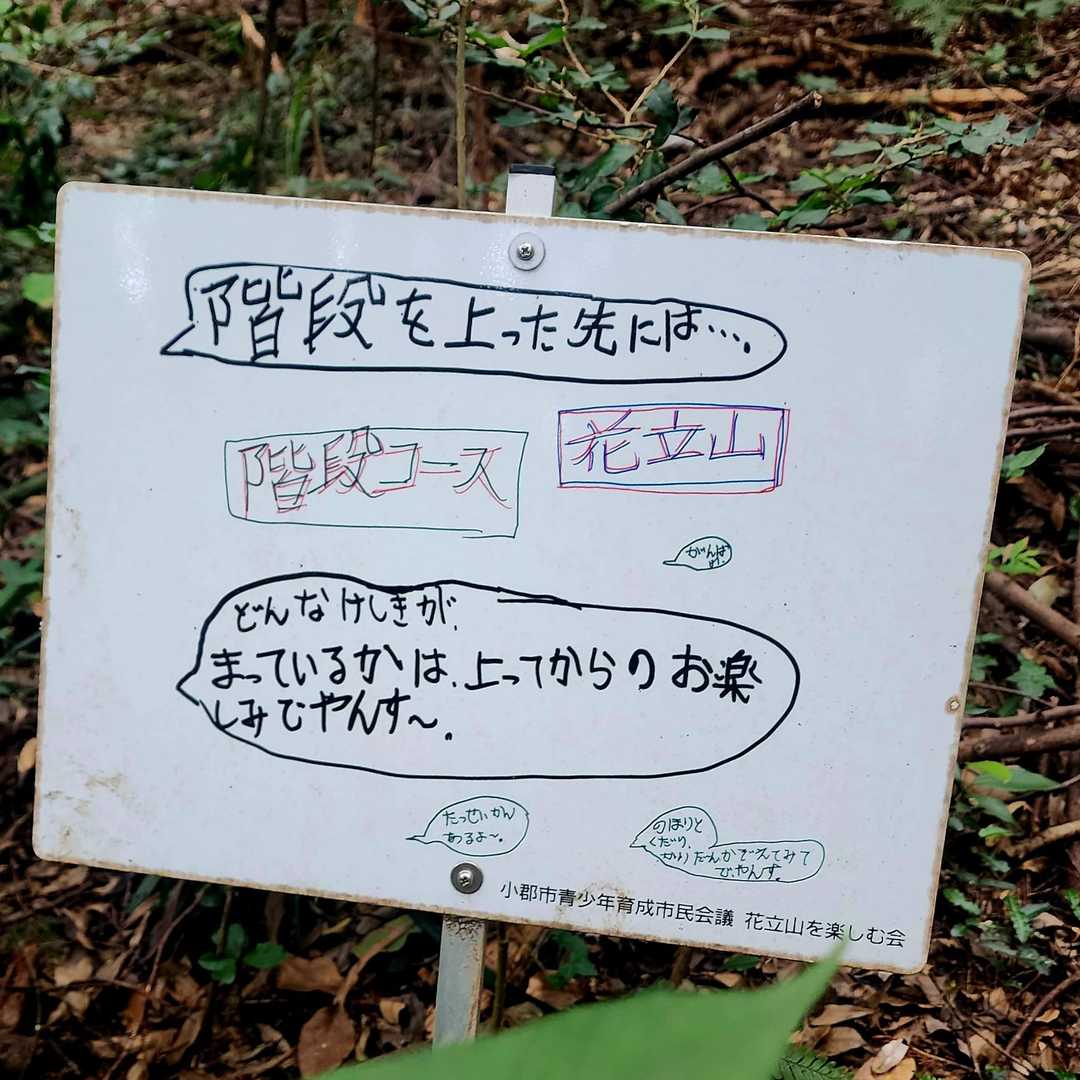 階段を上った先には….
階段コース
花立山
がんば
れ.
どんなけしきが、
まっているかは、上ってからのお楽
しみでやんす〜.
たっせいかん
あるよ〜.
のぼりと
くだり、
でやんす.
小郡市青少年育成市民会議 花立山を楽しむ会